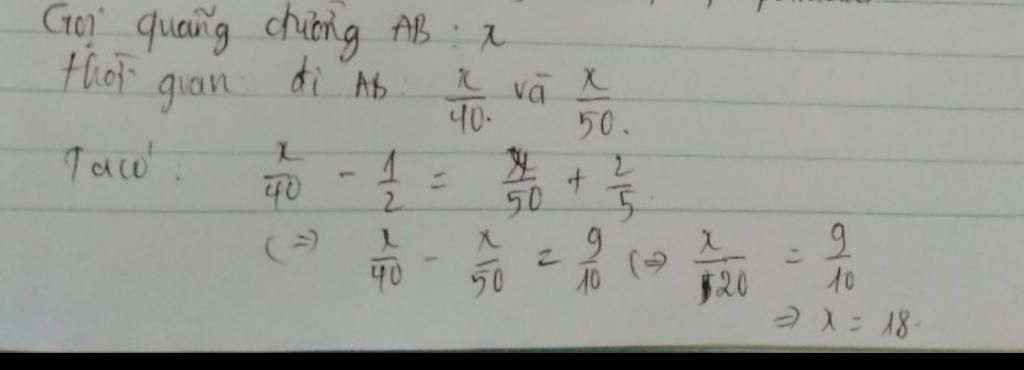 Gọi quãng đường AB : x
thời gian đi AB : x/40 và x/50.
Ta có : x/40 - 1/2 = x/50 + 2/5
(=>) x/40 - x/50 = 9/10 (=>) x/20 = 9/10
=> x = 18